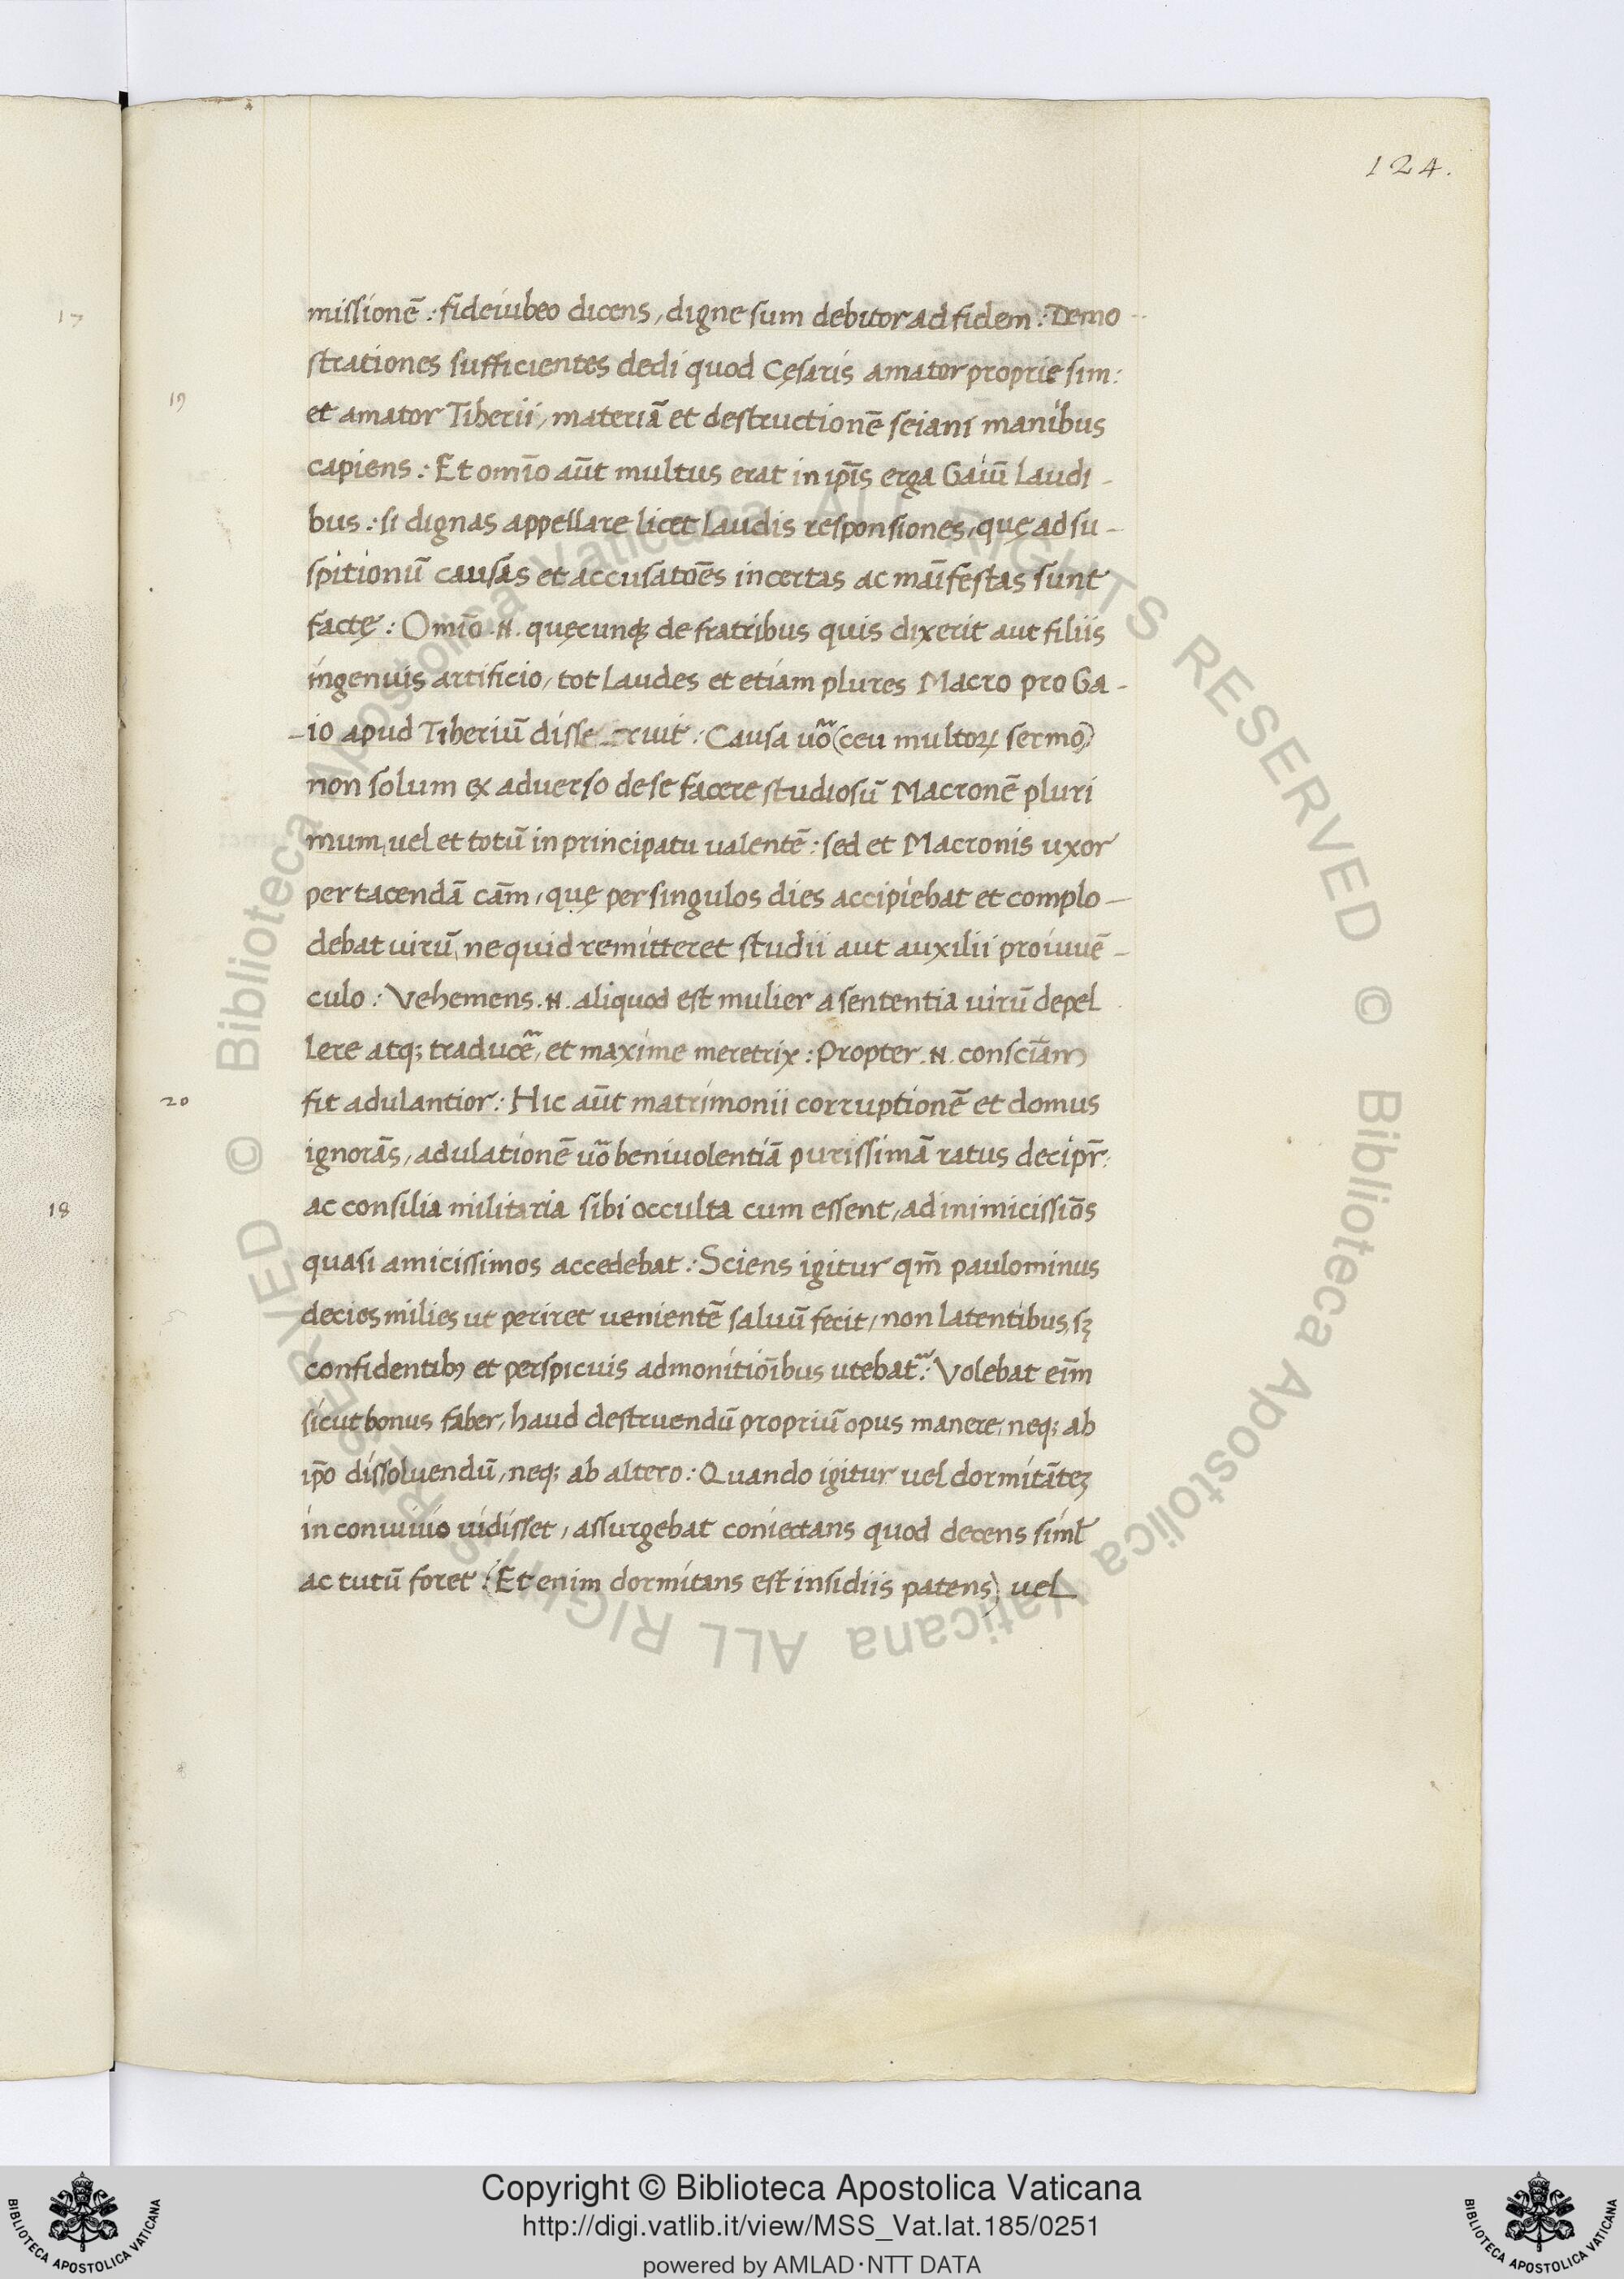 124.
17
19
missionē : fideiubeo dicens, digne sum debitor ad fidem : Demo-
strationes sufficientes dedi quod Cęsaris amator proprie sim :
et amator Tiberii, materiā et destructionē seiani manibus
capiens : Et omīo aūt multus erat in ip̄is erga Gaiū Laudi-
bus : si dignas appellare licet Laudis responsiones, quę ad su-
spitionū causas et accusatōes incertas ac maīfestas sunt
factę : Omīo .N. quęcunqȝ de fratribus quis dixerit aut filiis
ingenuis artificio, tot Laudes et etiam plures Macro pro Ga-
-io apud Tiberiū disse ruit : Causa uō (ceu multoꝝ sermo)
non solum ex aduerso de se facere studiosū Macronē pluri
mum, uel et totū in principatu ualentē : sed et Macronis uxor
per tacendā cām, quę per singulos dies accipiebat et complo-
debat uirū, ne quid remitteret studii aut auxilii pro iuuē-
culo : Vehemens .N. aliquod est mulier a sententia uirū depel
lere atq; traducē, et maxime meretrix : Propter .N. consciam
20
fit adulantior : Hic aūt matrimonii corruptionē et domus
ignorās, adulationē uō beniuolentiā purissimā ratus decipr̄ :
18
ac consilia militaria sibi occulta cum essent, ad inimicissiōs
quasi amicissimos accedebat : Sciens igitur qm̄ paulominus
decies milies ut periret uenientē saluū fecit, non Latentibus, sȝ
confidentibꝯ et perspicuis admonitioībus utebat͂ : Volebat eīm
sicut bonus faber, haud destruendū propriū opus manere, neq; ab
ip̄o dissoluendū, neq; ab altero : Quando igitur uel dormitāteȝ
in conuiuio uidisset, assurgebat coniectans quod decens siml̄
ac tutū foret : (Et enim dormitans est insidiis patens) uel
© Biblioteca Apostolica Vaticana ALL RIGHTS RESERVED © Biblioteca Apostolica Vaticana ALL RIGHTS RESERVED
Copyright © Biblioteca Apostolica Vaticana
http://digi.vatlib.it/view/MSS_Vat.lat.185/0251
powered by AMLAD·NTT DATA
BIBLIOTECA APOSTOLICA VATICANA
BIBLIOTECA APOSTOLICA VATICANA